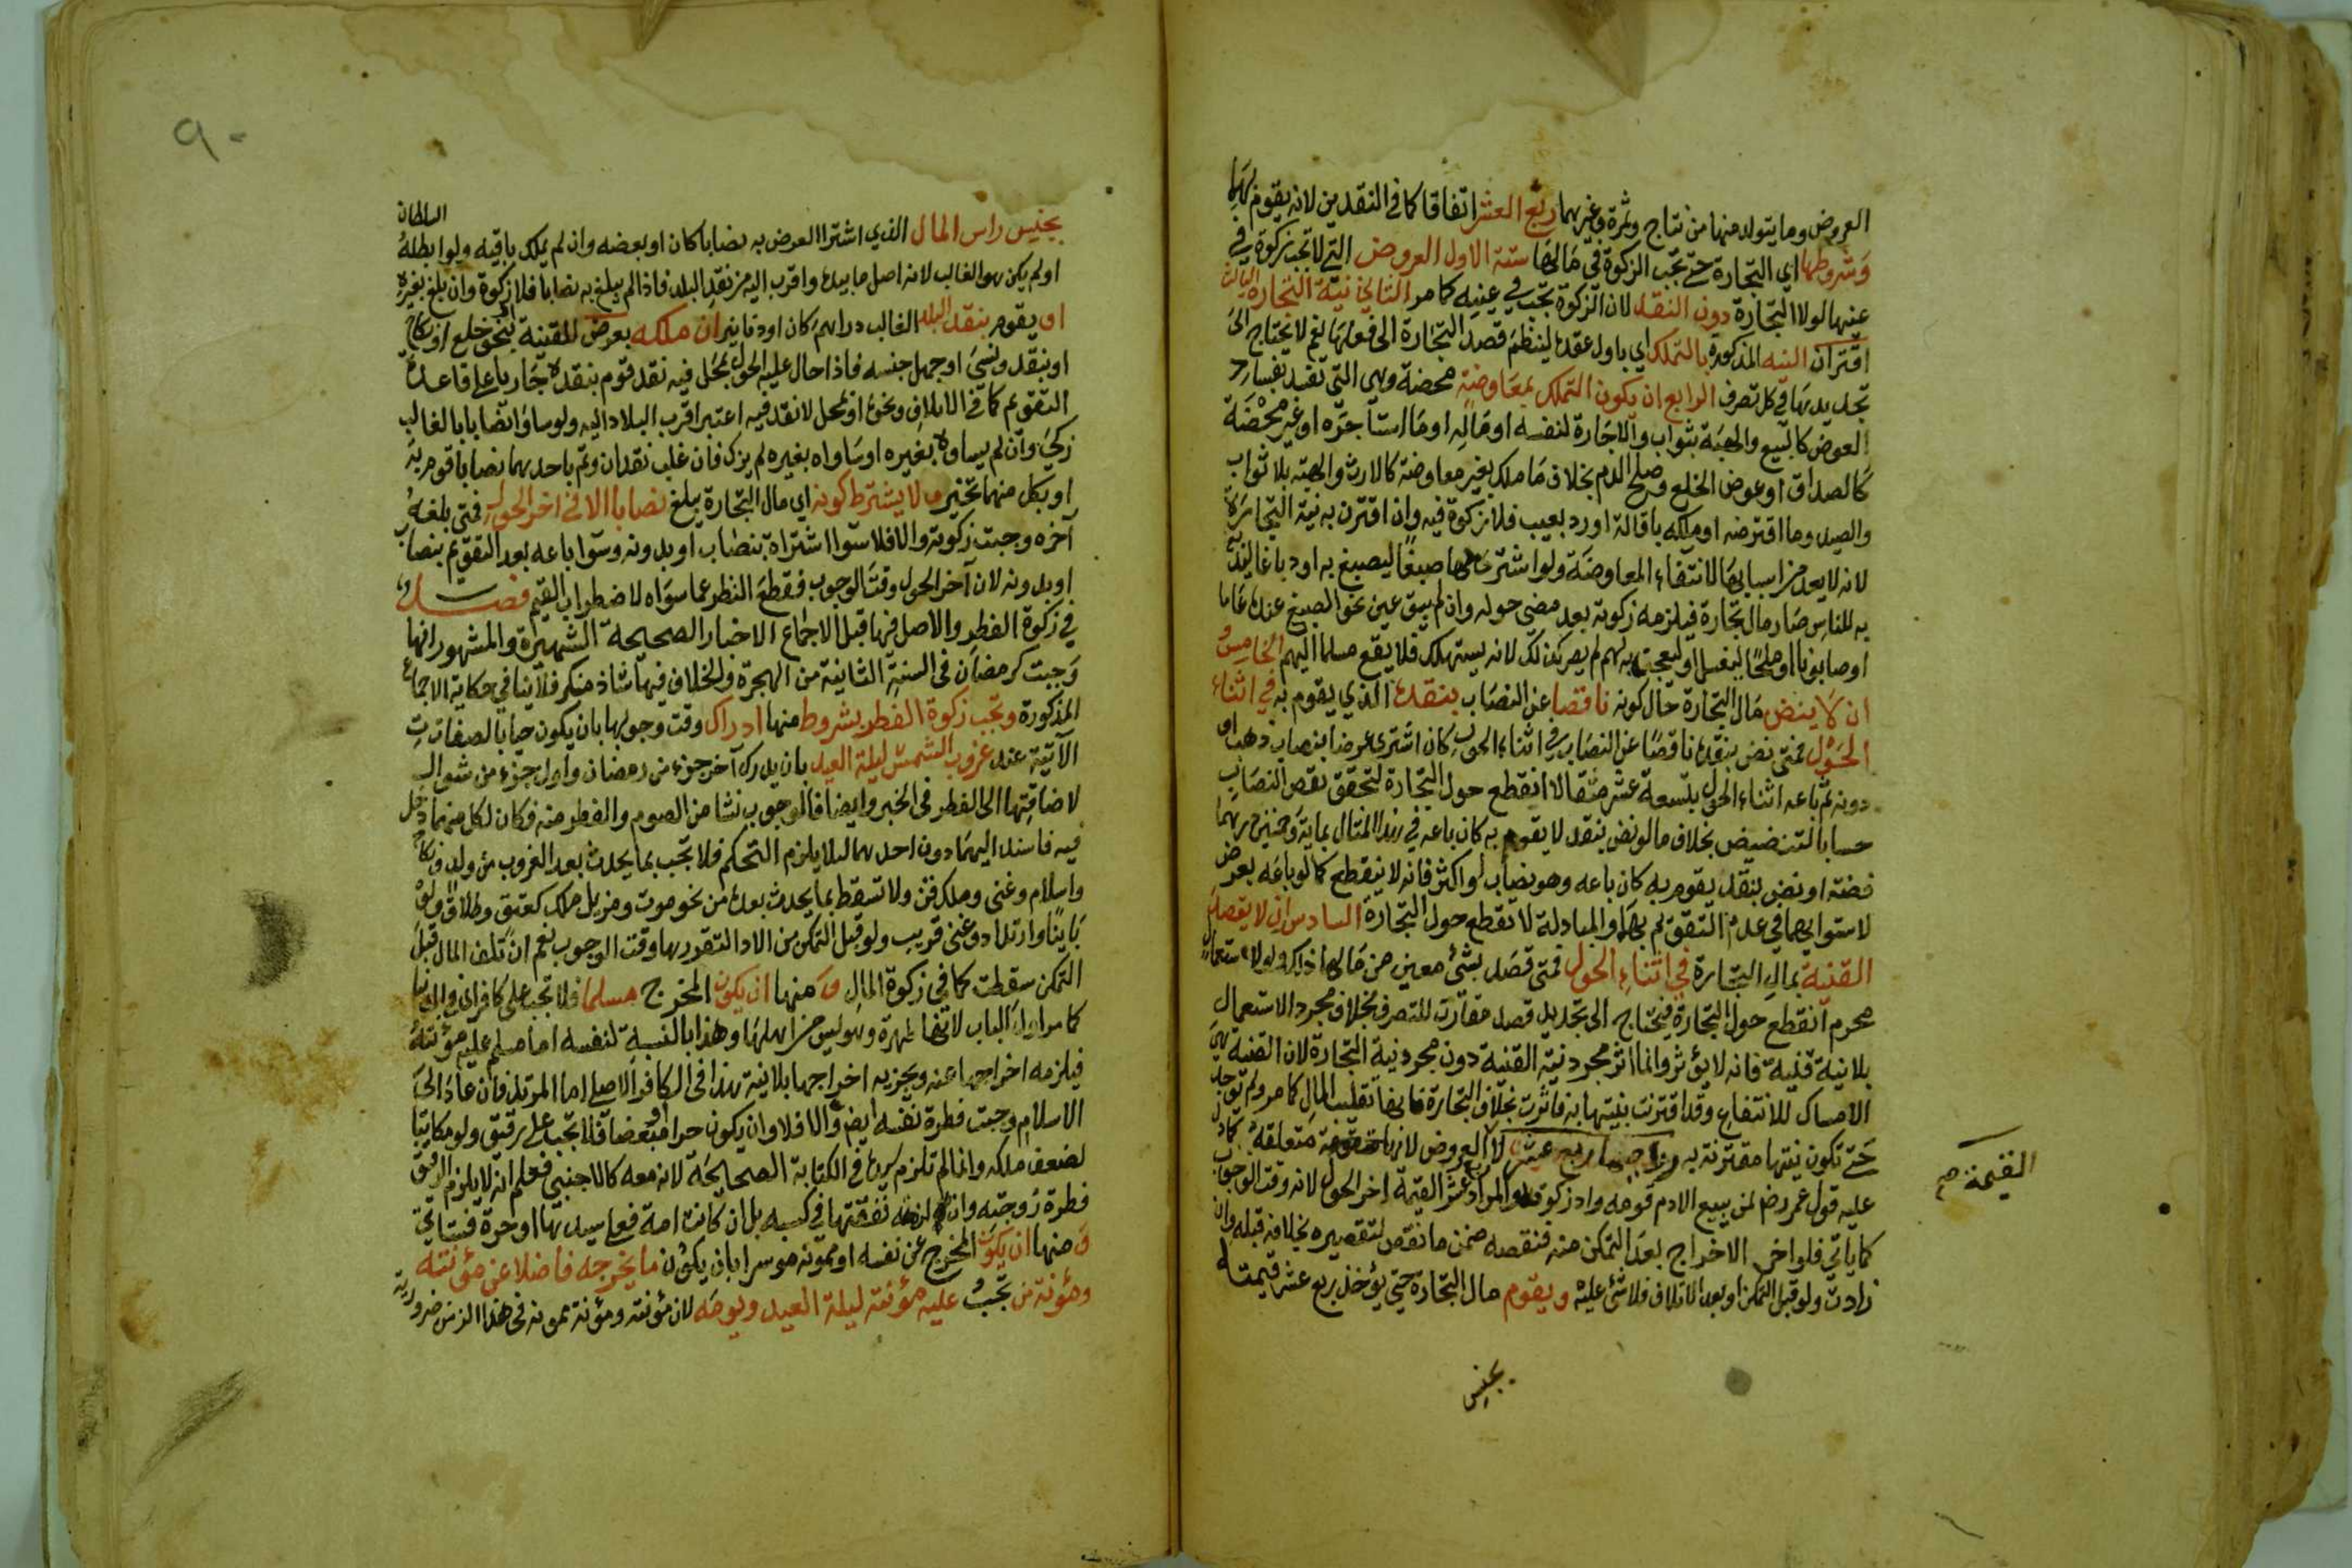 العروض وما يتولد منها من نتاج وثمرة وغيرهما ربع العشر اتفاقا كما في النقدين لانه يقوم بهما
وشروطها اي التجارة حتى تجب الزكوة في مالها ستة الاول العروض التي لا تجب زكوة في
عينها لولا التجارة دون النقد لان الزكوة تجب في عينه كما مر الثاني نية التجارة الثالث
اقتران النية المذكورة بالتملك اي باول عقده لينظم قصد التجارة الى فعلها نعم لا يحتاج الى
تجديدها في كل تصرف الرابع ان يكون التملك بمعاوضة محضة وهي التي تفسد بفساد
العوض كالبيع والهبة بثواب والاجارة لنفسه او ماله او ما استأجره او غير محضة
كالصداق او عوض الخلع وصلح الدم بخلاف ما ملك بغير معاوضة كالارث والهبة بلا ثواب
والصيد وما اقترضه او ملكه باقالة او رد بعيب فلا زكوة فيه وان اقترن به نية التجارة
لانه لا يعد من اسبابها لانتفاء المعاوضة ولو اشترى لها صبغا ليصبغ به او دباغا ليدبغ
به للناس صار مال تجارة فيلزمه زكوته بعد مضي حوله وان لم يبق عين نحو الصبغ عنده عاما
او صابونا او ملحا ليغسل او ليعجن به لهم لم يصر كذلك لانه يستهلك فلا يقع مسلما اليهم الخامس
ان لا ينض مال التجارة حال كونه ناقصا عن النصاب بنقده الذي يقوم به في اثناء
الحول فمتى نض بنقده ناقصا عن النصاب في اثناء الحول كان اشترى عرضا بنصاب ذهب او
دونه ثم باعه اثناء الحول بتسعة عشر مثقالا انقطع حول التجارة لتحقق نقص النصاب
حسا بالتنضيض بخلاف ما لو نض بنقد لا يقوم به كان باعه في هذا المثال بماية وخمسين درهما
فضة او نض بنقد يقوم به كان باعه وهو نصاب او اكثر فانه لا ينقطع كما لو باعه بعرض
لاستوائهما في عدم التقويم بها والمبادلة لا تقطع حول التجارة السادس ان لا يقصد
القنية بمال التجارة في اثناء الحول فمتى قصد بشئ معين من مالها ذلك ولو لاستعمال
محرم انقطع حول التجارة فيحتاج الى تجديد قصد مقارن للتصرف بخلاف مجرد الاستعمال
بلا نية قنية فانه لا يؤثر وانما اثر مجرد نية القنية دون مجرد نية التجارة لان القنية هي
الامساك للانتفاع وقد اقترنت بنيتها به فاثرت بخلاف التجارة فانها تقليب المال كما مر ولم توجد
حتى تكون نيتها مقترنة به وواجبها ربع عشر لا العروض لانها متعلقة كما دل
عليه قول عمر رض لمن يبيع الادم قومه واد زكوته والمراد ربع عشر القيمة اخر الحول لانه وقت الوجوب
كما ياتي فلو اخر الاخراج بعد التمكن منه فنقصه ضمن ما نقص لتقصيره بخلافه قبله وان
زادت ولو قبل التمكن او بعد الاتلاف فلا شئ عليه ويقوم مال التجارة حتى يؤخذ ربع عشر قيمته
القيمة صح
بجنس
٩٠
السلطان
بجنس راس المال الذي اشترا العرض به نصابا كان او بعضه وان لم يملك باقيه ولو ابطله
او لم يكن هو الغالب لانه اصل ما بيده واقرب اليه من نقد البلد فاذا لم يبلغ به نصابا فلا زكوة وان بلغ بغيره
او يقوم بنقد البلد الغالب دراهم كان او دنانير ان ملكه بعرض للقنية او بنحو خلع او نكاح
او بنقد ونسي او جهل جنسه فاذا حال عليه الحول بمحل فيه نقد قوم بنقده جاريا على قاعدة
التقويم كما في الاتلاف ونحوه او بمحل لا نقد فيه اعتبر اقرب البلاد اليه ولو ساوى نصابا بالغالب
زكي وان لم يساوه بغيره او ساواه بغيره لم يزك فان غلب نقدان وتم باحدهما نصابا قوم به
او بكل منهما تخير ولا يشترط كونه اي مال التجارة يبلغ نصابا الا في اخر الحول فمتى بلغه
آخره وجبت زكوته والا فلا سواء اشتراه بنصاب او بدونه وسواء باعه بعد التقويم بنصاب
او بدونه لان آخر الحول وقت الوجوب فقطع النظر عما سواه لاضطراب القيم فصل
في زكوة الفطر والاصل فيها قبل الاجماع الاخبار الصحيحة الشهيرة والمشهور انها
وجبت كرمضان في السنة الثانية من الهجرة والخلاف فيها شاذ منكر فلا ينافي حكاية الاجماع
المذكورة وتجب زكوة الفطر بشروط منها ادراك وقت وجوبها بان يكون حيا بالصفات
الآتية عند غروب الشمس ليلة العيد بان يدرك آخر جزء من رمضان واول جزء من شوال
لاضافتها الى الفطر في الخبر وايضا فالوجوب نشا من الصوم والفطر منه فكان لكل منهما دخل
فيه فاسند اليهما دون احدهما لئلا يلزم التحكم فلا تجب بما يحدث بعد الغروب من ولد ونكاح
واسلام وغنى وملك قن ولا تسقط بما يحدث بعده من نحو موت ومزيل ملك كعتق وطلاق ولو
باينا وارتداد وغنى قريب ولو قبل التمكن من الاداء لتقررها وقت الوجوب نعم ان تلف المال قبل
التمكن سقطت كما في زكوة المال ومنها ان يكون المخرج مسلما فلا تجب على كافر
كما مر اول الباب لانها طهرة وليس من اهلها وهذا بالنسبة لنفسه اما مسلم عليه مؤنته
فيلزمه اخراجها عنه ويجزيه اخراجها بلا نية هذا في الكافر الاصلي اما المرتد فان عاد الى
الاسلام وجبت فطرة نفسه ايضا والا فلا وان يكون حرا او مبعضا فلا تجب على رقيق ولو مكاتبا
لضعف ملكه وانما لم تلزم سيده في الكتابة الصحيحة لانه معه كالاجنبي فعلم انه لا يلزم الرقيق
فطرة زوجته وان لزمه نفقتها في كسبه بل ان كانت امة فعلى سيدها او حرة فستاتي
ومنها ان يكون المخرج عن نفسه او ممونه موسرا بان يكون ما يخرجه فاضلا عن مؤنته
ومؤنة من تجب عليه مؤنته ليلة العيد ويومه لان مؤنته ومؤنة ممونه في هذا الزمن ضرورية